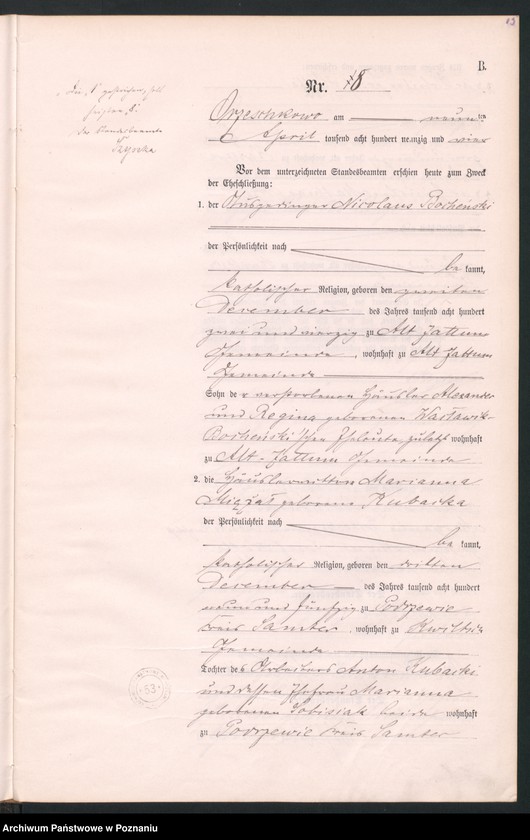 13
B.
Nr. 8
Orzeschkowo am neunten
April tausend acht hundert neunzig und vier
Vor dem unterzeichneten Standesbeamten erschien heute zum Zweck
der Eheschließung:
1. der Ausgedinger Nicolaus Bocheński
der Persönlichkeit nach
bekannt,
katholischer Religion, geboren den zweiten
December des Jahres tausend acht hundert
zwei und vierzig zu Alt Jattum
Gemeinde, wohnhaft zu Alt Jattum
Gemeinde
Sohn der verstorbenen Häusler Alexander
und Regina geborenen Warławik-
Bocheński'schen Eheleute, zuletzt wohnhaft
zu Alt-Jattum Gemeinde
2. die Häuslerwittwe Marianna
geborene Kubacka
der Persönlichkeit nach
bekannt,
katholischer Religion, geboren den dritten
December des Jahres tausend acht hundert
neun und fünfzig zu Podrzewie
Kreis Samter, wohnhaft zu Kwiltsch
Gemeinde
Tochter des Arbeiters Anton Kubacki
und dessen Ehefrau Marianna
geborenen Sobisiak beide wohnhaft
zu Podrzewie Kreis Samter
Der Standesbeamte
53
Archiwum Państwowe w Poznaniu